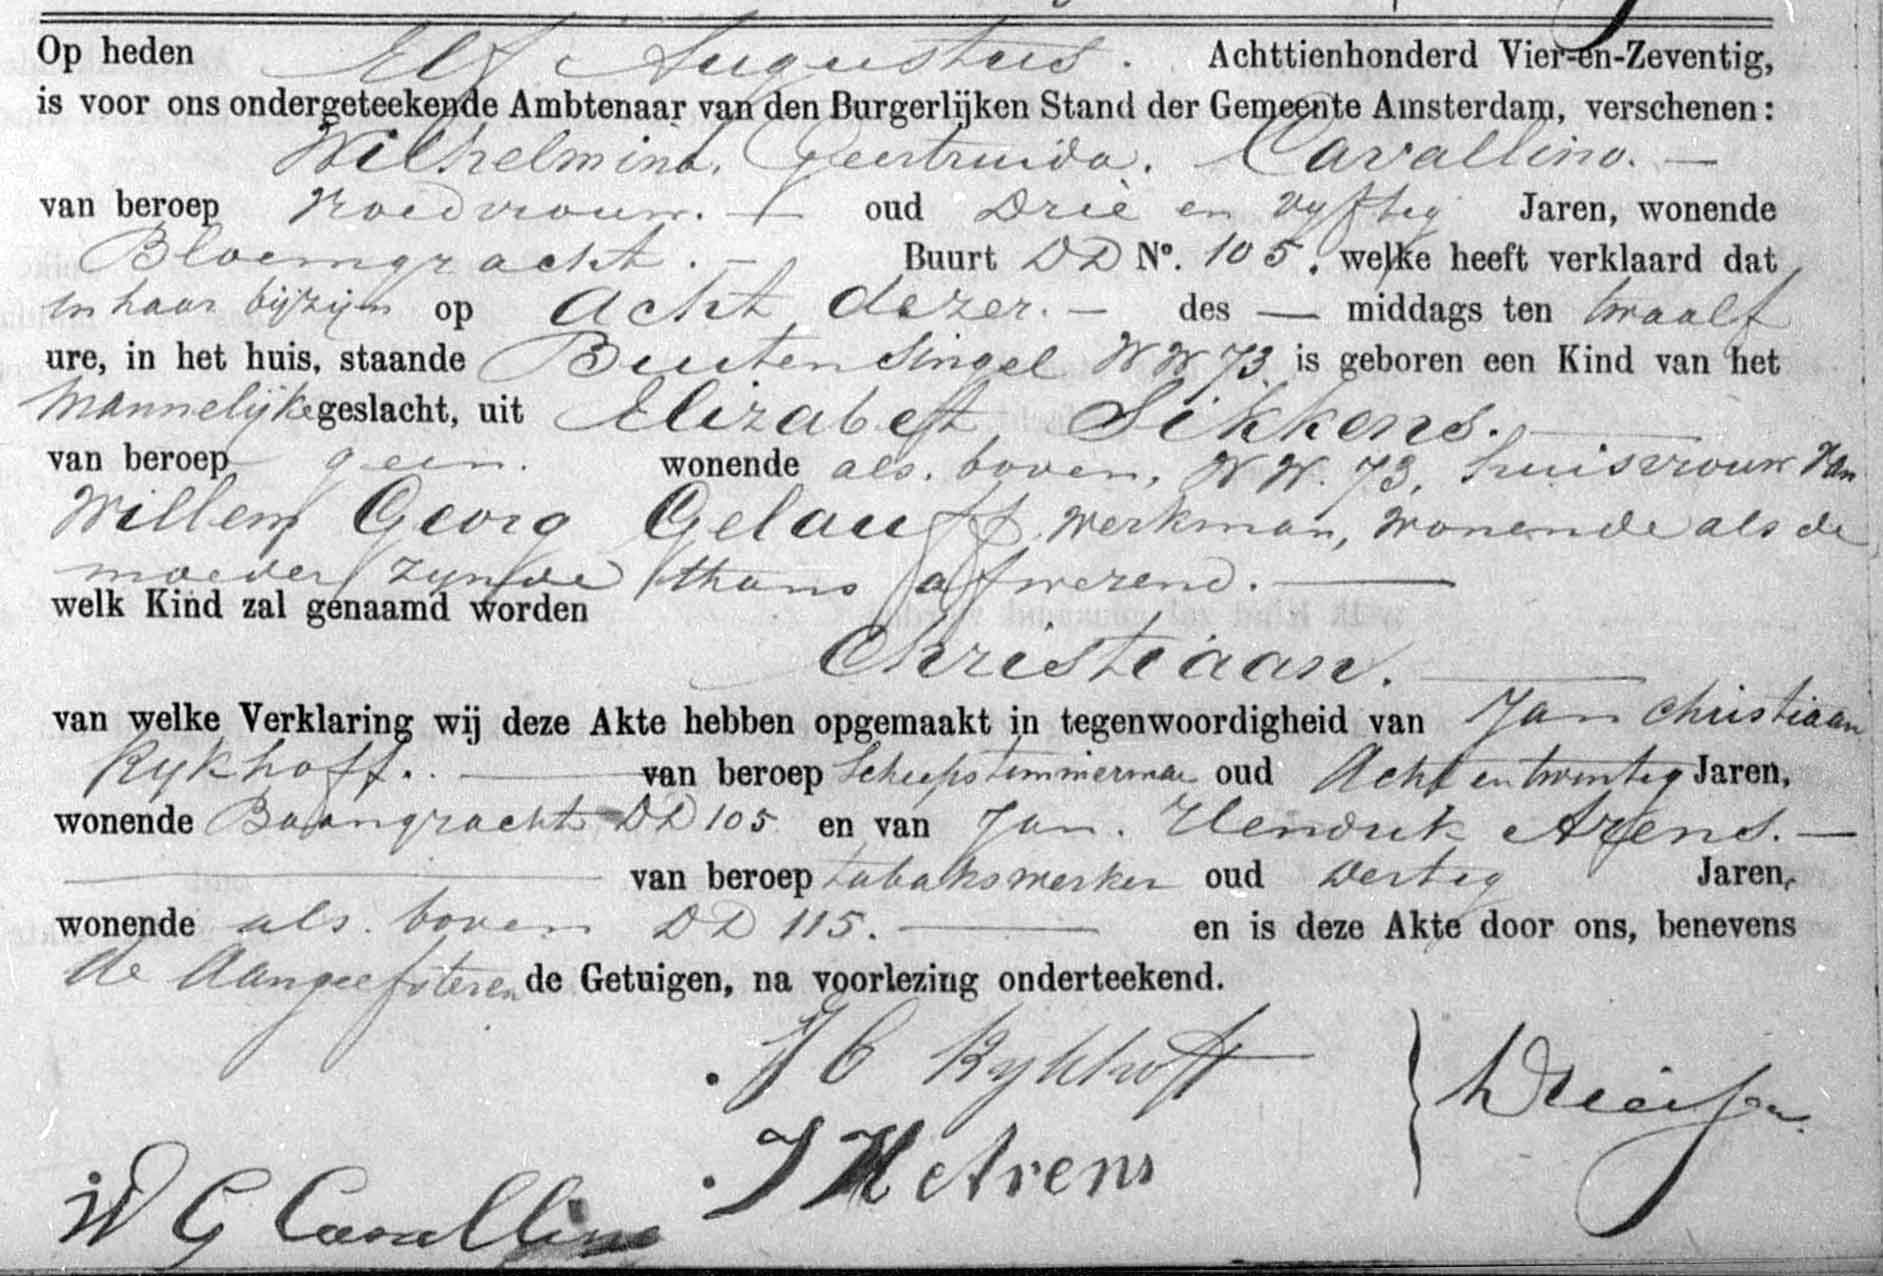 Op heden Elf Augustus. Achttienhonderd Vier-en-Zeventig,
is voor ons ondergeteekende Ambtenaar van den Burgerlijken Stand der Gemeente Amsterdam, verschenen:
Wilhelmina Geertruida Cavallino. —
van beroep Vroedvrouw. — oud Drie en vyftig Jaren, wonende
Bloemgracht. — Buurt DD No. 105, welke heeft verklaard dat
in haar bijzijn op acht dezer. — des — middags ten twaalf
ure, in het huis, staande Buitensingel WW 73 is geboren een Kind van het
Mannelijke geslacht, uit Elizabeth Sikkens. —
van beroep geen. wonende als boven, WW. 73, huisvrouw van
Willem Georg Gelauff, werkman, wonende als de
moeder zynde thans afwezend. —
welk Kind zal genaamd worden
Christiaan. —
van welke Verklaring wij deze Akte hebben opgemaakt in tegenwoordigheid van Jan Christiaan
Rykhoff. — van beroep Scheepstimmerman oud Acht en twintig Jaren,
wonende Baangracht DD 105 en van Jan Hendrik Arens. —
— van beroep tabakswerker oud Dertig Jaren,
wonende als boven DD 115. — en is deze Akte door ons, benevens
de Aangeefsteren de Getuigen, na voorlezing onderteekend.
J C Rykhoff
J H Arens
W G Cavallino